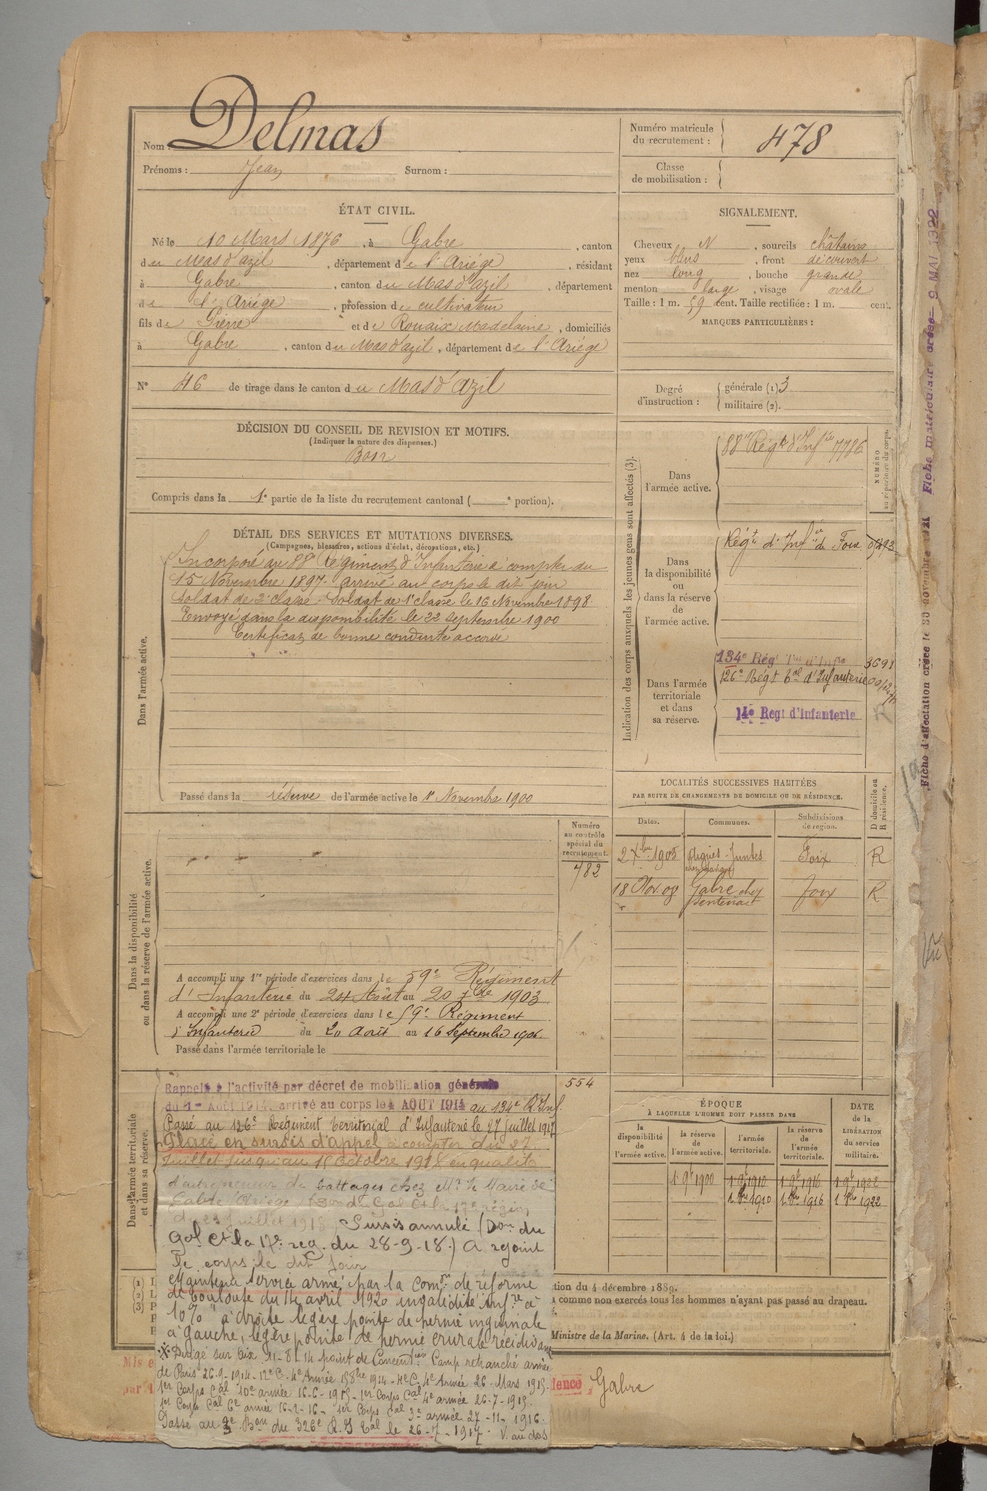 Nom : Delmas
Prénoms : Jean Surnom :
Numéro matricule du recrutement : 478
Classe de mobilisation :
ÉTAT CIVIL.
Né le 10 Mars 1876, à Gabre, canton
du Mas d'azil, département de l'Ariège, résidant
à Gabre, canton du Mas d'azil, département
de l'Ariège, profession de cultivateur
fils de Pierre et de Rouaix Madelaine, domiciliés
à Gabre, canton du Mas d'azil, département de l'Ariège
N° 46 de tirage dans le canton du Mas d'Azil
SIGNALEMENT.
Cheveux N, sourcils châtains
yeux bleus, front découvert
nez long, bouche grande
menton large, visage ovale
Taille : 1 m. 59 cent. Taille rectifiée : 1 m. cent.
MARQUES PARTICULIÈRES :
Degré d'instruction : générale (1) 3
militaire (2).
DÉCISION DU CONSEIL DE REVISION ET MOTIFS.
(Indiquer la nature des dispenses.)
Bon
Compris dans la 1e partie de la liste du recrutement cantonal ( e portion).
DÉTAIL DES SERVICES ET MUTATIONS DIVERSES.
(Campagnes, blessures, actions d'éclat, décorations, etc.)
Dans l'armée active.
Incorporé au 88e Régiment d'Infanterie à compter du
15 Novembre 1897. arrivé au corps le dit jour
soldat de 2e classe. Soldat de 1e classe le 16 Novembre 1898
Envoyé dans la disponibilité le 22 septembre 1900
Certificat de bonne conduite accordé
Passé dans la réserve de l'armée active le 1er Novembre 1900
Indication des corps auxquels les jeunes gens sont affectés (3).
NUMÉRO au répertoire du corps.
Dans l'armée active.
88e Régt d'Infie 7786
Dans la disponibilité ou dans la réserve de l'armée active.
Régt d'Infie de Foix
Dans l'armée territoriale et dans sa réserve.
134e Rég 3691
126e Régt tal d'Infanterie
14e Regt d'Infanterie
R
LOCALITÉS SUCCESSIVES HABITÉES
PAR SUITE DE CHANGEMENTS DE DOMICILE OU DE RÉSIDENCE.
Dates. Communes. Subdivisions de région. D domicile ou R résidence.
2 Xbre 1905 Rieques-Juntes Foix R
18 Nov 08 Gabre chez Foix R
Dans la disponibilité ou dans la réserve de l'armée active.
Numéro au contrôle spécial du recrutement.
482
A accompli une 1re période d'exercices dans le 59e Régiment
d'Infanterie du 24 Août au 20 7bre 1903
A accompli une 2e période d'exercices dans le 59e Régiment
d'Infanterie du 20 Août au 16 Septembre 1906
Passé dans l'armée territoriale le
Dans l'armée territoriale et dans sa réserve.
554
Rappelé à l'activité par décret de mobilisation générale
du 1er Août 1914. arrivé au corps le 4 AOUT 1914 au 134e R. Inf.
Passé au 126e Régiment territorial d'Infanterie le 27 juillet 1917
Placé en sursis d'appel à compter du 27
Juillet jusqu'au 15 Octobre 1918 en qualité
d'entrepreneur de battages chez Mr le Maire de
Gabre (Ariège)
Sursis annulé (Don du
Gal Ct la 17e reg. du 28-9-18.) A rejoint
le corps le dit jour
Maintenu service armé par la Comon de réforme
de Toulouse du 14 avril 1920 invalidité infre à
10% "à droite légère pointe de hernie inguinale
à gauche, légère pointe de hernie crurale récidivante
Dirigé sur Aix 11-8-14 point de Concention Camp retranché armée
de Paris 26-9-1914
1er Corps Cal 10e armée 16-6-1915 - 1er Corps Cal 4e armée 26-7-1915
1er Corps Cal 6e armée 16-2-16 - 1er Corps Cal 3e armée 27-11-1916.
Passé au 3e Bon du 326e R.I Tal le 26-7-1917 V. au dos
ÉPOQUE
À LAQUELLE L'HOMME DOIT PASSER DANS
la disponibilité de l'armée active. la réserve de l'armée active. l'armée territoriale. la réserve de l'armée territoriale. DATE de la LIBÉRATION du service militaire.
1 9bre 1900 1 9bre 1910 1 9bre 1916 1 9bre 1922
1 8bre 1910 1 8bre 1916 1 8bre 1922
tion du 4 décembre 1889.
comme non exercés tous les hommes n'ayant pas passé au drapeau.
Ministre de la Marine. (Art. 4 de la loi.)
(1)
(2)
(3)
Mis e
par
dence Gabre
Fiche d'affectation créée le 30 novembre 1921 Fiche matriculaire créée 9 MAI 1922